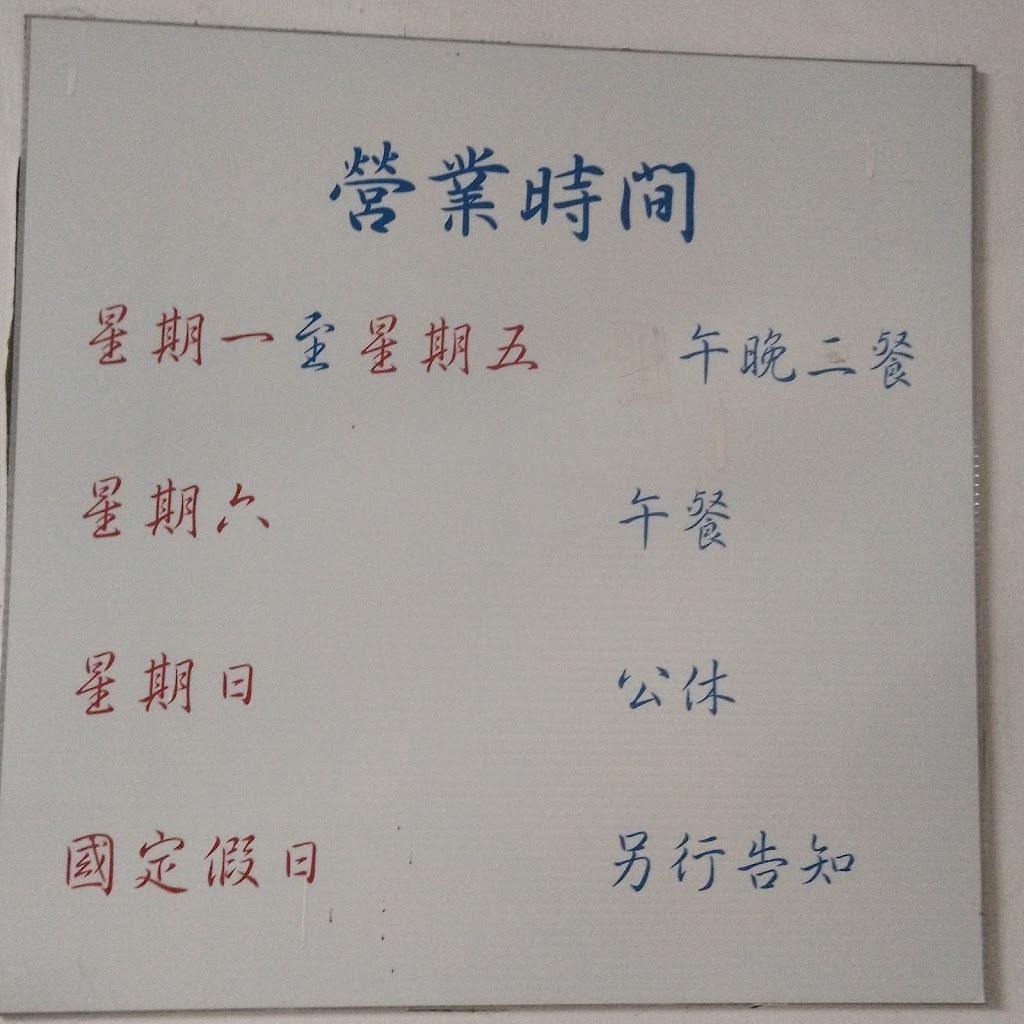 營業時間
星期一至星期五 午晚二餐
星期六 午餐
星期日 公休
國定假日 另行告知